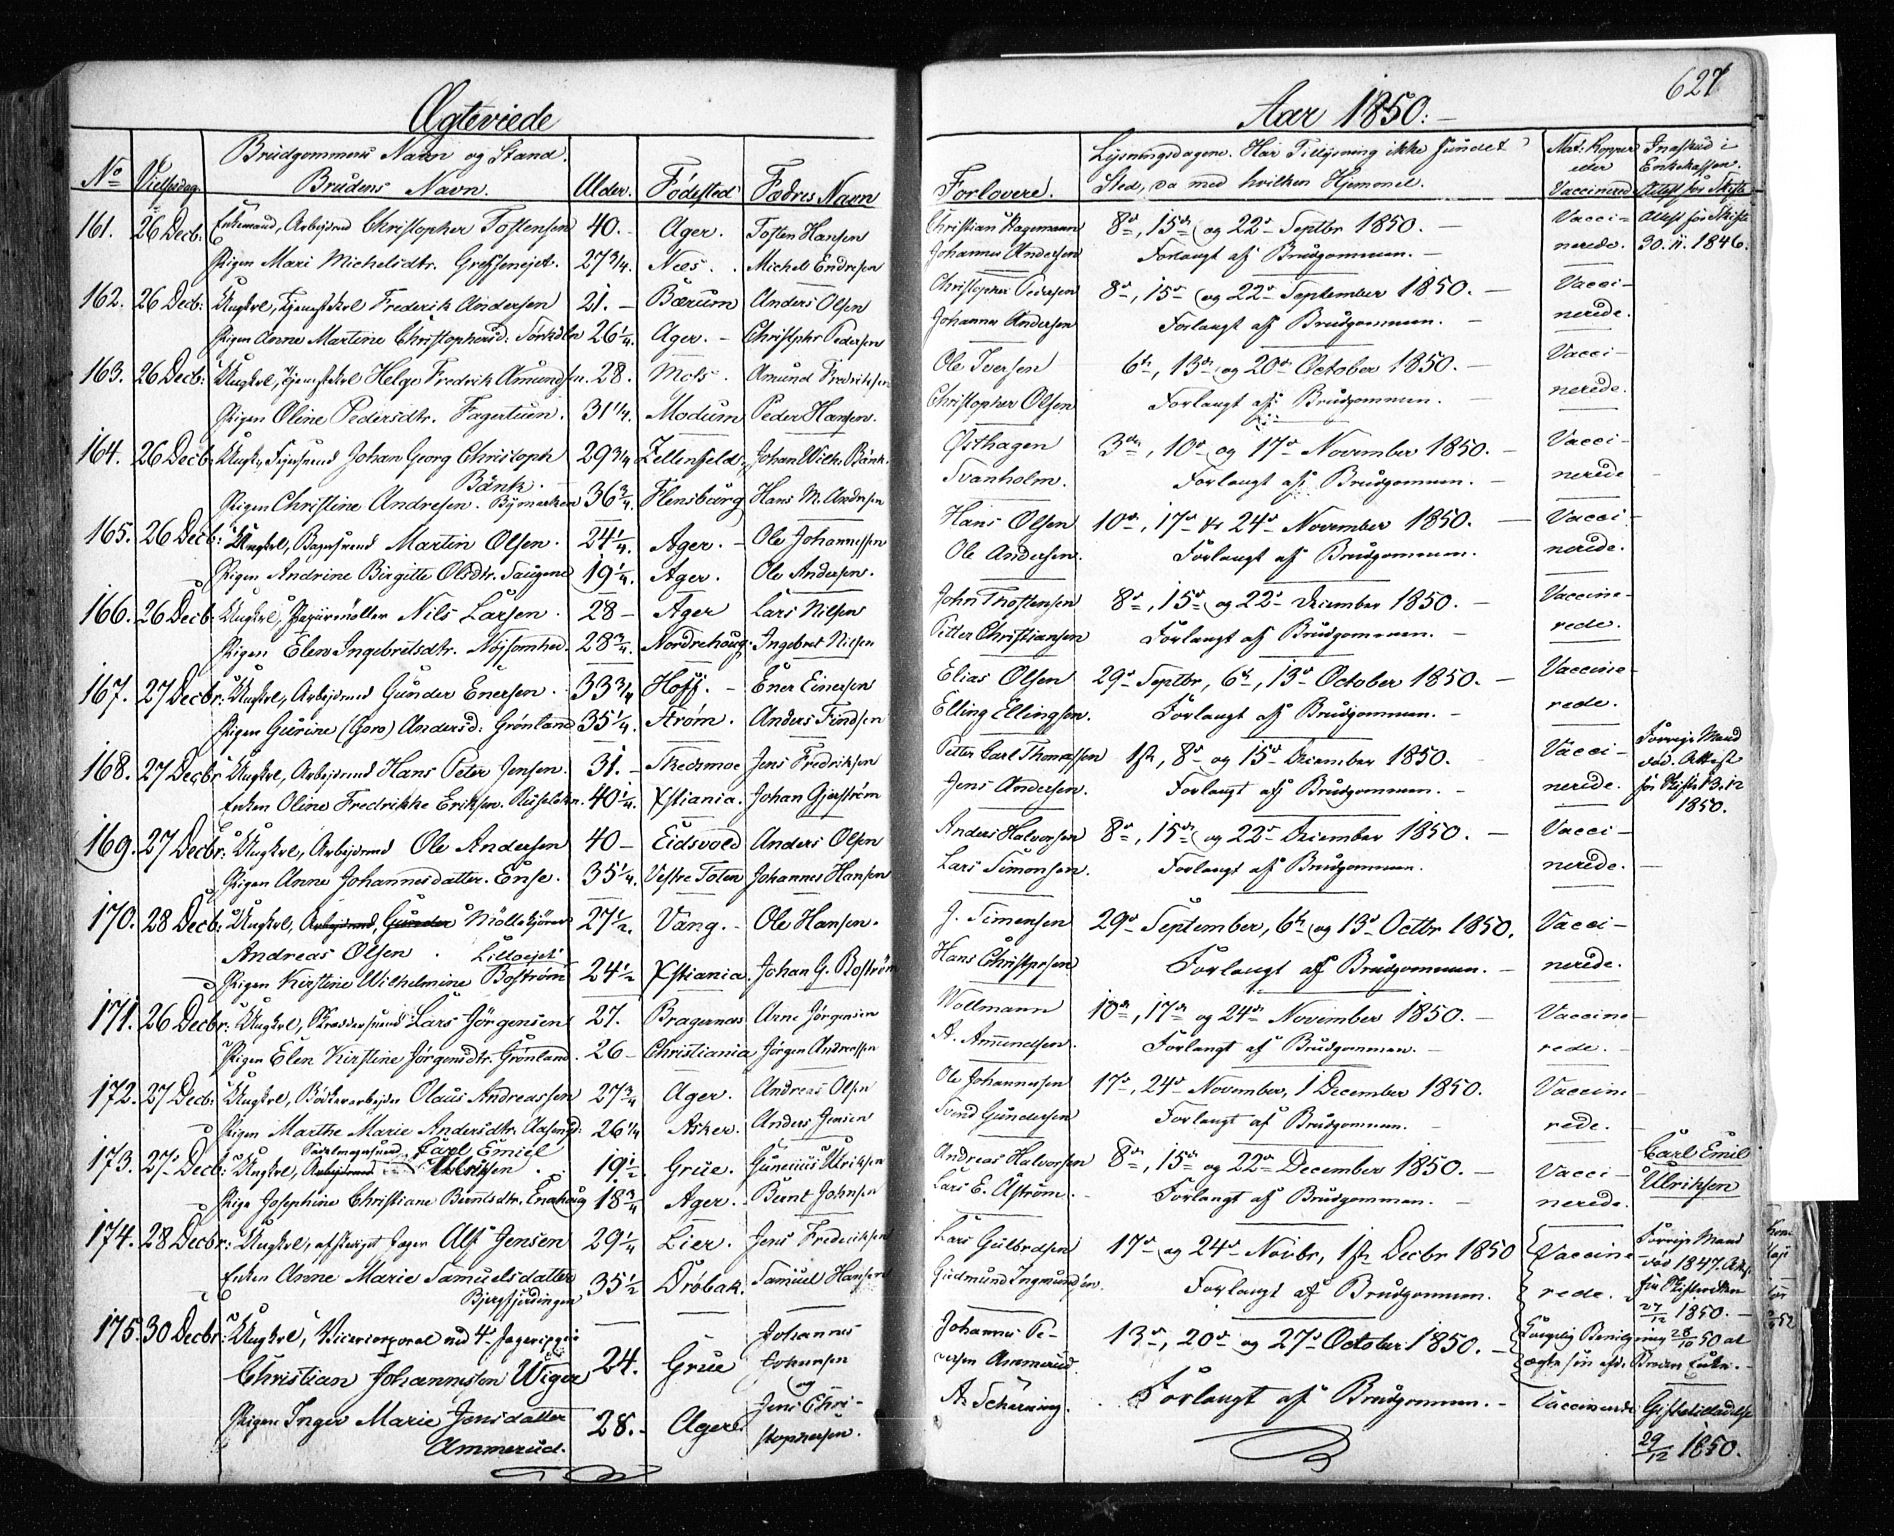 Ægteviede
Aar 1850.
627
No
Vielsesdag.
Brudgommens Navn og Stand.
Brudens Navn.
Alder.
Fødested
Fædres Navn
Forlovere.
Lysningsdagene. Har Tillysning ikke fundet
Sted, da med hvilken Hjemmel.
Nat: Kopper
eller
Vaccinered
Indskud i
Enkekassen.
Attest for Skifte
161. 26 Decb: Enkemand, Arbejdsmd Christopher Tostensen 40. Ager. Tosten Hansen Christian Hagemann 8de, 15de og 22de Septbr 1850. Vacci- Attest for Skifte
Pigen Mari Michelsdtr. Grefsenejet. 27 3/4. Næs. Michel Endresen Johannes Andersen Forlangt af Brudgommen. nerede. 30.11.1846.
162. 26 Decb: Ungkrl, Tjenestekrl Frederik Andersen 21. Bærum Anders Olsen Christopher Pedersen 8de, 15de og 22de September 1850. Vacci-
Pigen Anne Martine Christophersd: 26 1/4. Ager. Christophr Pedersen Johannes Andersen Forlangt af Brudgommen. nerede.
163. 26 Decb: Ungkrl, Tjenestekrl Helge Fredrik Amundsen. 28. Moss. Amund Fredriksen Ole Iversen 6te, 13de og 20de October 1850. Vacci-
Pigen Oline Pedersdtr. Fagertuen. 31 1/4. Modum Peder Hansen. Christopher Olsen Forlangt af Brudgommen. nerede.
164. 26 Decb. Ungk, Johan Georg Christoph 29 3/4 Zellerfeld Johan Wilh. Bänk. Østhagen 3die, 10de og 17de November 1850. Vacci-
Bänk. Svanholm. Forlangt af Brudgommen. nerede
Pigen Christine Andresen. Bymarken 36 3/4. Flensburg Hans M. Andresen
165. 26 Decb: Ungkrl, Bagersvend Martin Olsen. 24 1/4. Ager. Ole Johannessen Hans Olsen 10de, 17de & 24de November 1850. Vacci-
Pigen Andrine Birgitte Olsdtr. Saugene 19 1/4. Ager. Ole Andersen. Ole Andersen. Forlangt af Brudgommen. nerede.
166. 26 Decb Ungkrl, Papiirmøller Nils Larsen. 28 Ager Lars Nilsen John Thostensen 8de, 15de og 22de December 1850. Vaccine-
Pigen Elen Ingebretsdtr. Nøjsomhed. 28 3/4. Norderhoug. Ingebret Nilsen Petter Christiansen Forlangt af Brudgommen. rede.
167. 27 Decbr: Ungkrl, Arbejdsmd Gunder Enersen. 33 3/4 Hoff. Ener Einersen Elias Olsen 29de Septbr, 6te, 13de October 1850. Vaccine-
Pigen Gurine (Goro) Andersd: Grønland 35 1/4. Strøm. Anders Findsen Elling Ellingsen. Forlangt af Brudgommen. rede.
168. 27 Decbr Ungkrl, Arbejdsmd Hans Peter Jensen. 31. Skedsmoe Jens Fredriksen Petter Carl Thomassen 1ste, 8de og 15de December 1850. Vacci- Forrige Mand
Enken Oline Fredrikke Eriksen. 40 1/4. Xstiania. Johan Gjerström Jens Andersen. Forlangt af Brudgommen. nerede. død. Attest
for Skifte 13.12
1850.
169. 27 Decbr: Ungkrl, Arbejdsmd Ole Andersen 40 Eidsvold Anders Olsen Anders Halvorsen 8de, 15de og 22de December 1850. Vacci-
Pigen Anne Johannesdatter. Ense. 35 1/4. Vestre Toten Johannes Hansen Lars Simonsen. Forlangt af Brudgommen. nerede.
170. 28 Decb: Ungkrl, Arbejdsmd, Gunder Møllekjører 27 1/2. Vang. Ole Hansen. J. Simensen 29de September, 6te og 13de Octbr 1850. Vacci-
Andreas Olsen. Lilloejet Hans Christphsen Forlangt af Brudgommen. nerede.
Pigen Kirstine Wilhelmine Boström 24 1/2 Xstiania. Johan G. Boström
171. 26 Decbr: Ungkrl, Skræddersvend Lars Jörgensen 27. Bragernæs Arne Jörgensen Wollmann 10de, 17de og 24de November 1850. Vaccine-
Pigen Elen Kirstine Jørgensdtr. Grønland. 26 Christiania Jørgen Andreassen A. Amundsen. Forlangt af Brudgommen. rede.
172. 27 Decb: Ungkrl, Bødkerarbejder Olaus Andreassen 27 3/4 Ager. Andreas Olsen Ole Johannesen 17de, 24de November, 1 December 1850. Vaccine-
Pigen Marthe Marie Andersdtr. 26 1/4 Asker. Anders Jensen Svend Gundersen Forlangt af Brudgommen. rede.
173. 27 Decb: Ungkrl, Arbejdsmd Sadelmagersvend Carl Emiel
Ulriksen. 19 1/2. Grue. Gunerius Ulriksen Andreas Halvorsen 8de, 15de og 22de December 1850. Vacci- Carl Emil
Pige Josephine Christiane Berntsdtr. Enehaug 18 3/4 Ager. Bernt Johnsen Lars E. Aström. Forlangt af Brudgommen. nerede. Ulriksen
174. 28 Decbr: Ungkrl, afskediget Jæger Alf Jensen 29 1/4 Lier. Jens Frederiksen Lars Gulbrdsen 17de og 24de Novbr, 1ste Decbr 1850 Vaccine- Forrige Mand
Enken Anne Marie Samuelsdatter 35 1/2 Drøbak. Samuel Hansen Gudmund Ingmundsen. Forlangt af Brudgommen. rede. død 1847. Attest
Bjergfjerdingen for Skifteretten
27/12 1850.
175. 30 Decbr: Ungkrl, Vicecorporal ved 4de Jægercorps Johannes Johannes Pe- 13de, 20de og 27de October 1850. Kongelig Bevilgning 28/10 50 at
Christian Johannessen Wiger 24. Grue Johansen dersen Ammerud ægte sin afd. Broders Enke.
og
Pigen Inger Marie Jensdatter 28. Ager Jens Chri- A. Scherning. Forlangt af Brudgommen. Vaccinerede Giftetilladelse
Ammerud. stophersen. 29/12 1850.